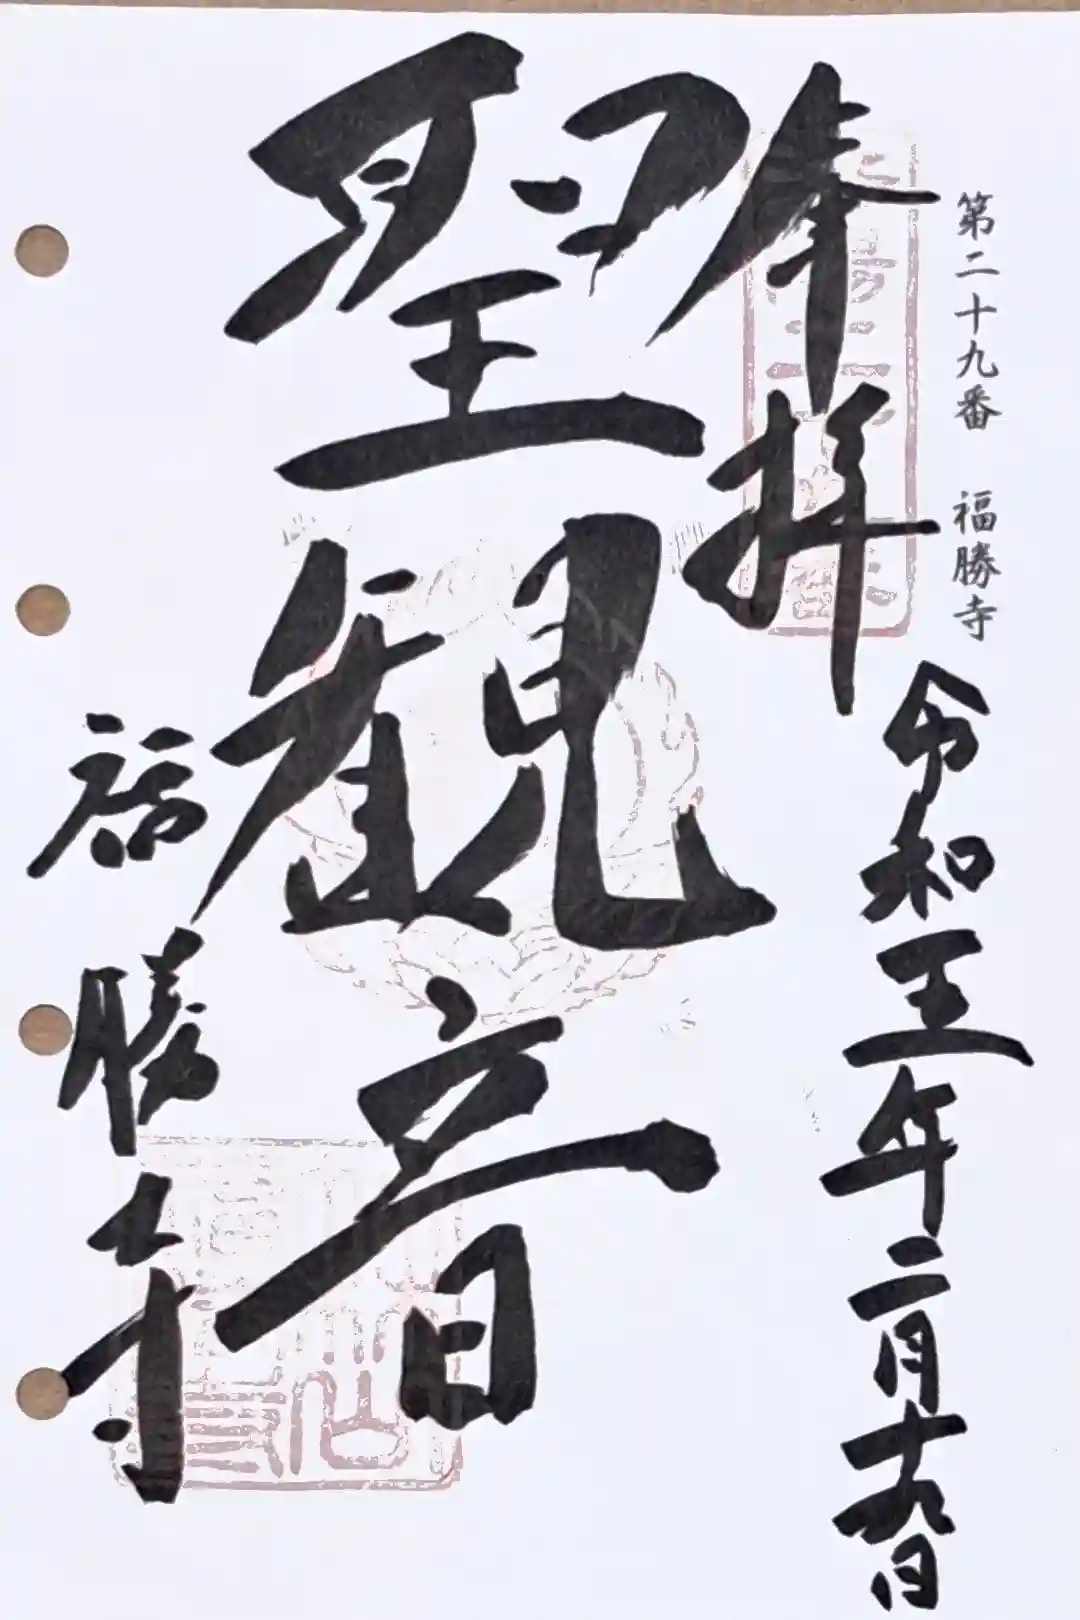 第二十九番 福勝寺
令和五年二月十九日
奉拝
聖観音
福勝寺